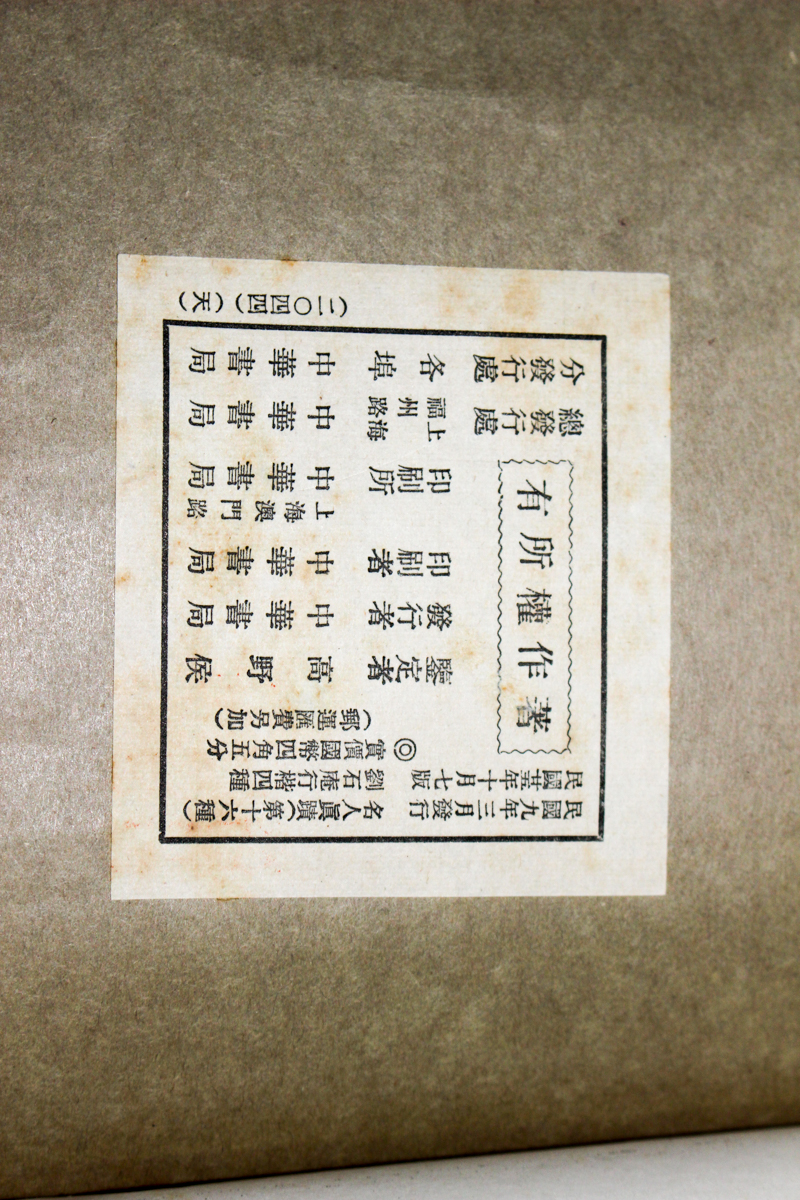 民國九年三月發行
民國廿五年十月七版
名人眞蹟(第十六種)
劉石庵行楷四種
◎實價國幣四角五分
(郵運匯費另加)
著作權所有
鑒定者 高野侯
發行者 中華書局
印刷者 中華書局
印刷所 上海澳門路 中華書局
總發行處 上海福州路 中華書局
分發行處 各埠 中華書局
(二〇四四)(天)